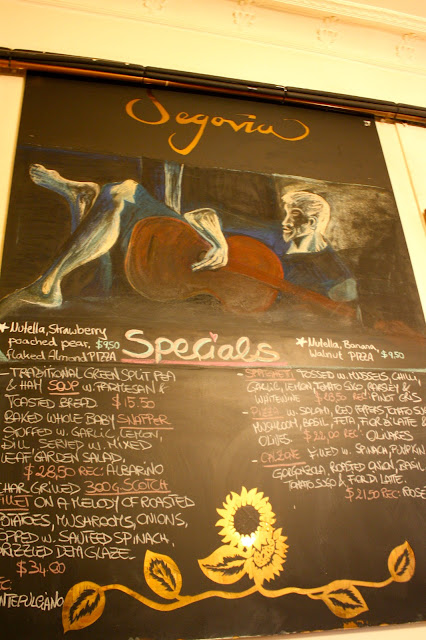 Segovia
★ Nutella, Strawberry
poached pear, $9.50
Flaked Almond PIZZA
Specials
★ Nutella, Banana,
Walnut PIZZA $9.50
- TRADITIONAL GREEN SPLIT PEA
& HAM SOUP w. PARMESAN &
TOASTED BREAD $15.50
BAKED WHOLE BABY SNAPPER
STUFFED w. GARLIC, LEMON,
DILL, SERVED w. MIXED
LEAF GARDEN SALAD,
$28.50 REC: ALBARINO
CHAR GRILLED 300G SCOTCH
FILLET ON A MELODY OF ROASTED
POTATOES, MUSHROOMS, ONIONS,
TOPPED w. SAUTEED SPINACH,
DRIZZLED DEMI GLAZE
$34.00
REC:
MONTEPULCIANO
- SPAGHETTI TOSSED w. MUSSELS, CHILLI,
GARLIC, LEMON, TOMATO SUGO, PARSLEY &
WHITE WINE $28.50 REC: PINOT GRIS
- PIZZA w. SALAMI, RED PEPPERS, TOMATO SUGO,
MUSHROOM, BASIL, FETA, FIOR DI LATTE &
OLIVES $22.00 REC:
- CALZONE FILLED w. SPINACH, PUMPKIN,
GORGONZOLA, ROASTED ONION, BASIL,
TOMATO SUGO & FIOR DI LATTE.
$21.50 REC: ROSE